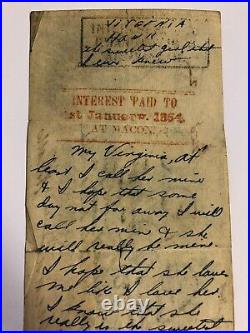 VIRGINIA
HAWK
the sweetest girl that
I ever knew
INTEREST PAID TO
1st January, 1864,
AT MACON.
My Virginia, at
least I call her mine
& I hope that some
day not far away I will
call her mine & she
will really be mine.
I hope that she loves
me like I love her.
I know that she
really is the sweetest